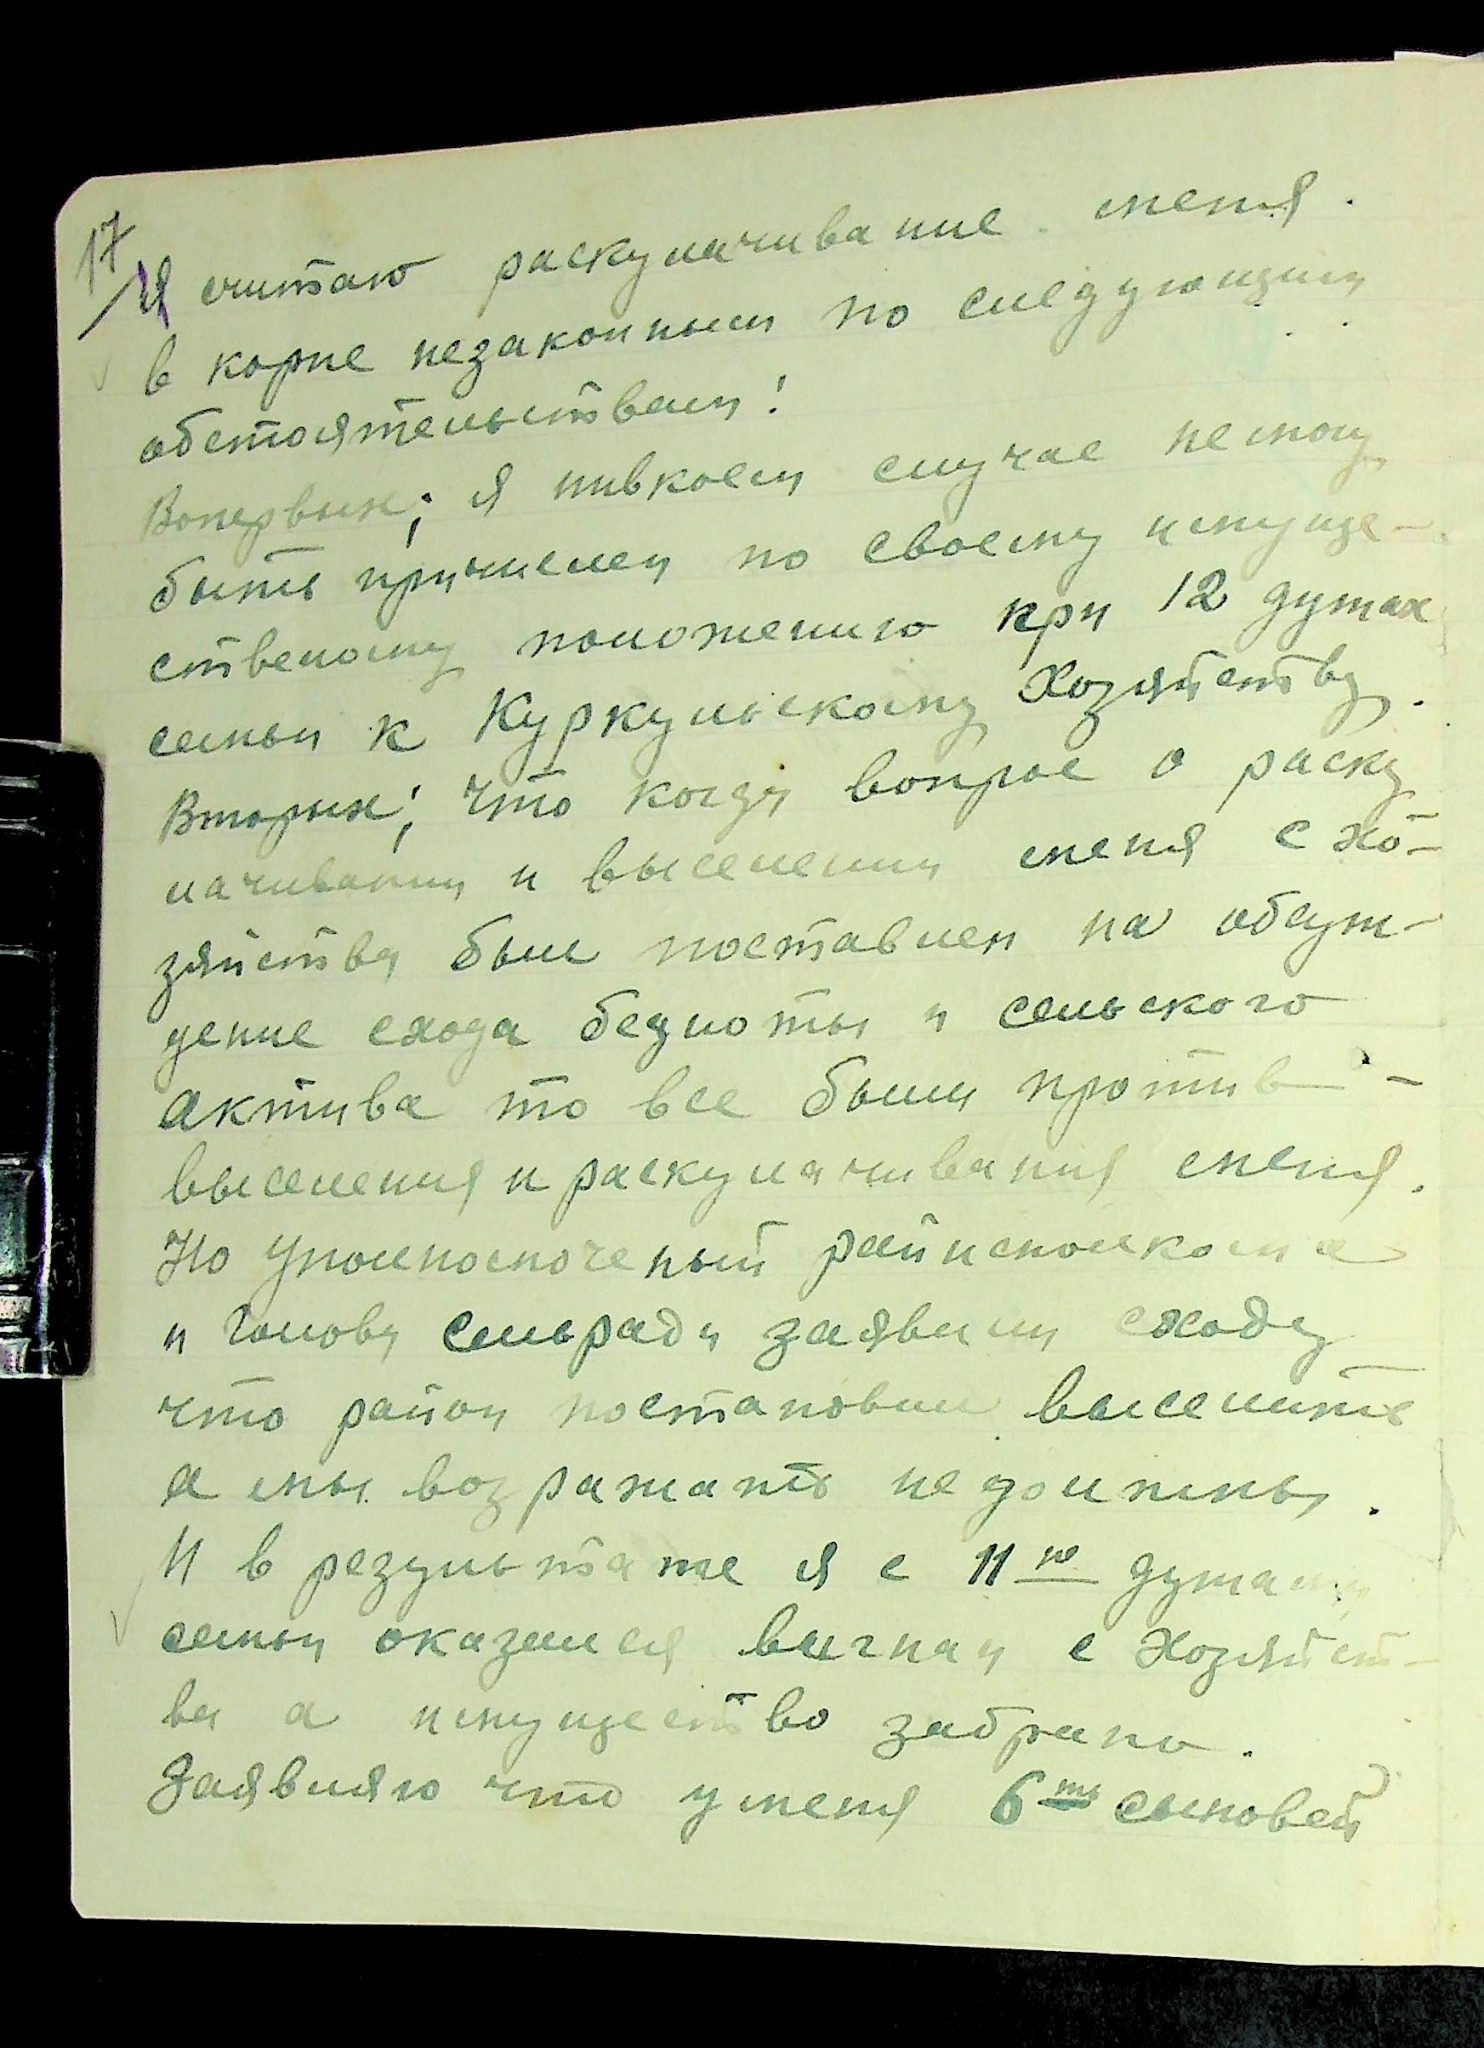 17
Я считаю раскулачивание меня.
в корне незаконным по следующим
обстоятельствам:
Вопервых; я нивкоем случае немогу
быть причислен по своему имуще-
ственому положению при 12 душах
семьи к Куркульскому Хозяйству.
Вторых; что когда вопрос о раску
лачивании и выселении меня с хо-
зяйства был поставлен на обсуж-
дение схода бедноты и сельского
актива то все были против -
выселения и раскулачивания меня.
Но Уполномоченый райисполкома
и Голова сельради заявили сходу
что район постановил выселить
а мы возражать не должны.
И в результате я с 11ю душами
семьи оказался выгнан с Хозяйст-
ва а имущество забрано.
Заявляю что уменя 6ть сыновей